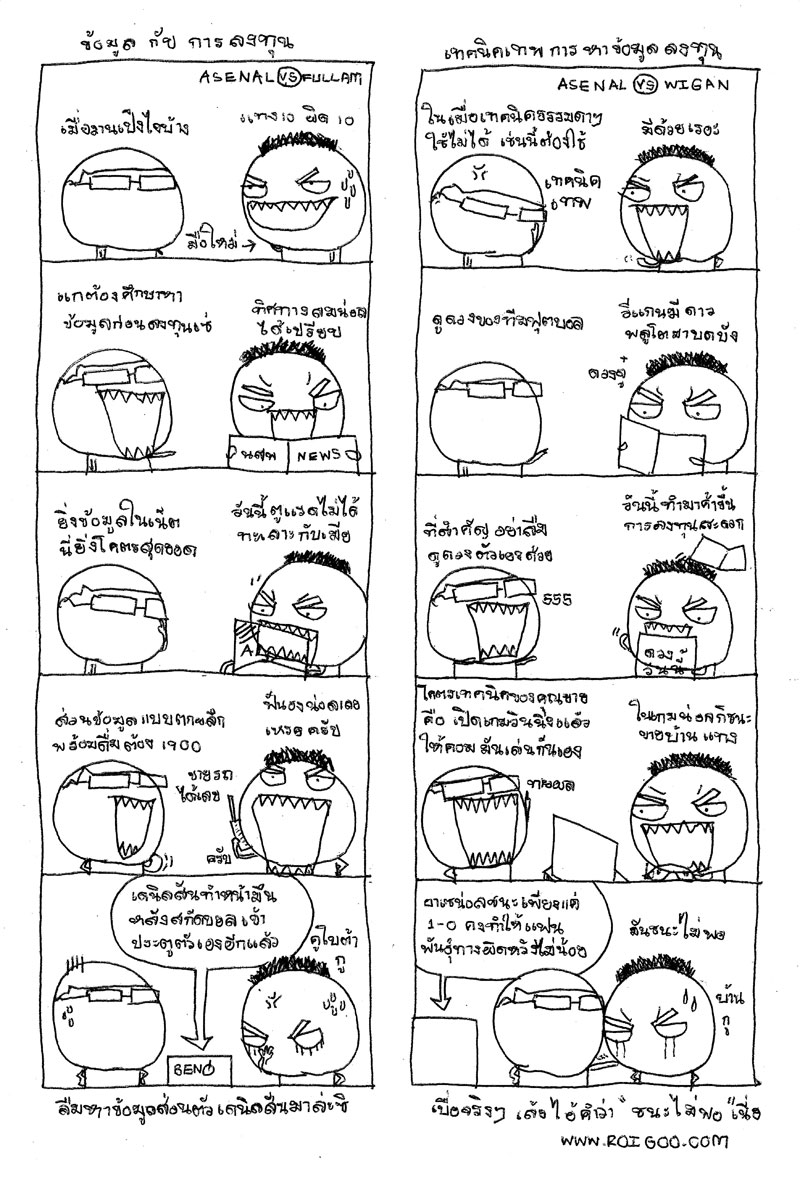 ข้อมูล กับ การลงทุน
ASENAL VS FULLAM
เมื่อวานเป็งไงบ้าง
แทง 10 ผิด 10
มือใหม่
แกต้องศึกษาหา
ข้อมูลก่อนลงทุนเซ่
ทิศทางลมน่อล
ได้เปรียบ
นสพ NEWS
ยิ่งข้อมูลในเน็ต
นี่ยิ่งโคตรสุดยอด
วันนี้ตูแรดไม่ได้
ทะเลาะกับเมีย
A
ส่วนข้อมูลแบบตกผลึก
พร้อมดื่มต้อง 1900
ฟันธงน่อลเลย
เหรอครับ
ขายรถ
ได้เลย
ครับ
เดนิลสันทำหน้ามึน
หลังสกัดบอลเข้า
ประตูตัวเองอีกแล้ว
คูโบต้า
กู
SENO
ลืมหาข้อมูลส่วนตัวเดนิลสันมาล่ะซิ
เทคนิคเทพ การหาข้อมูลลงทุน
ASENAL VS WIGAN
ในเมื่อเทคนิคธรรมดาๆ
ใช้ไม่ได้ เช่นนี้ต้องใช้
มีด้วยเรอะ
เทคนิค
เทพ
ดูดวงของทีมฟุตบอล
วีแกนมีดาว
พลูโตมาบดบัง
ดวงจู๋
ที่สำคัญ อย่าลืม
ดูดวงตัวเองด้วย
555
วันนี้ทำมาค้าขึ้น
การลงทุนสะดวก
ดวง
วันนี้
โคตรเทคนิคของคุณชาย
คือ เปิดเกมวินนิ่งแล้ว
ให้คอมมันเล่นกันเอง
ในเกมน่อลก็ชนะ
ขายบ้านแทง
ทายผล
อาเซน่อลชนะเพียงแค่
1-0 คงทำให้แฟน
พันธุ์ทางผิดหวังไม่น้อย
มันชนะไม่พอ
บ้าน
กู
เบื่อจริงๆ เล้ย ไอ้คำว่า "ชนะไม่พอ" เนี่ย
WWW.ROIGOO.COM